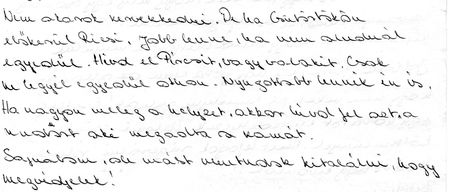 Nem akarok rinyekkedni. De ha Csütörtökön
előkerül Ricsi, jobb lenne, ha nem aludnál
egyedül. Hívd el Pircsit, vagy valakit. Csak
ne legyél egyedül otthon. Nyugottabb lennék én is.
Ha nagyon meleg a helyzet, akkor hívd fel azt a
rendőrt aki megadta a számát.
Sajnálom, de mást nem tudok kitalálni, hogy
megvédjelek!